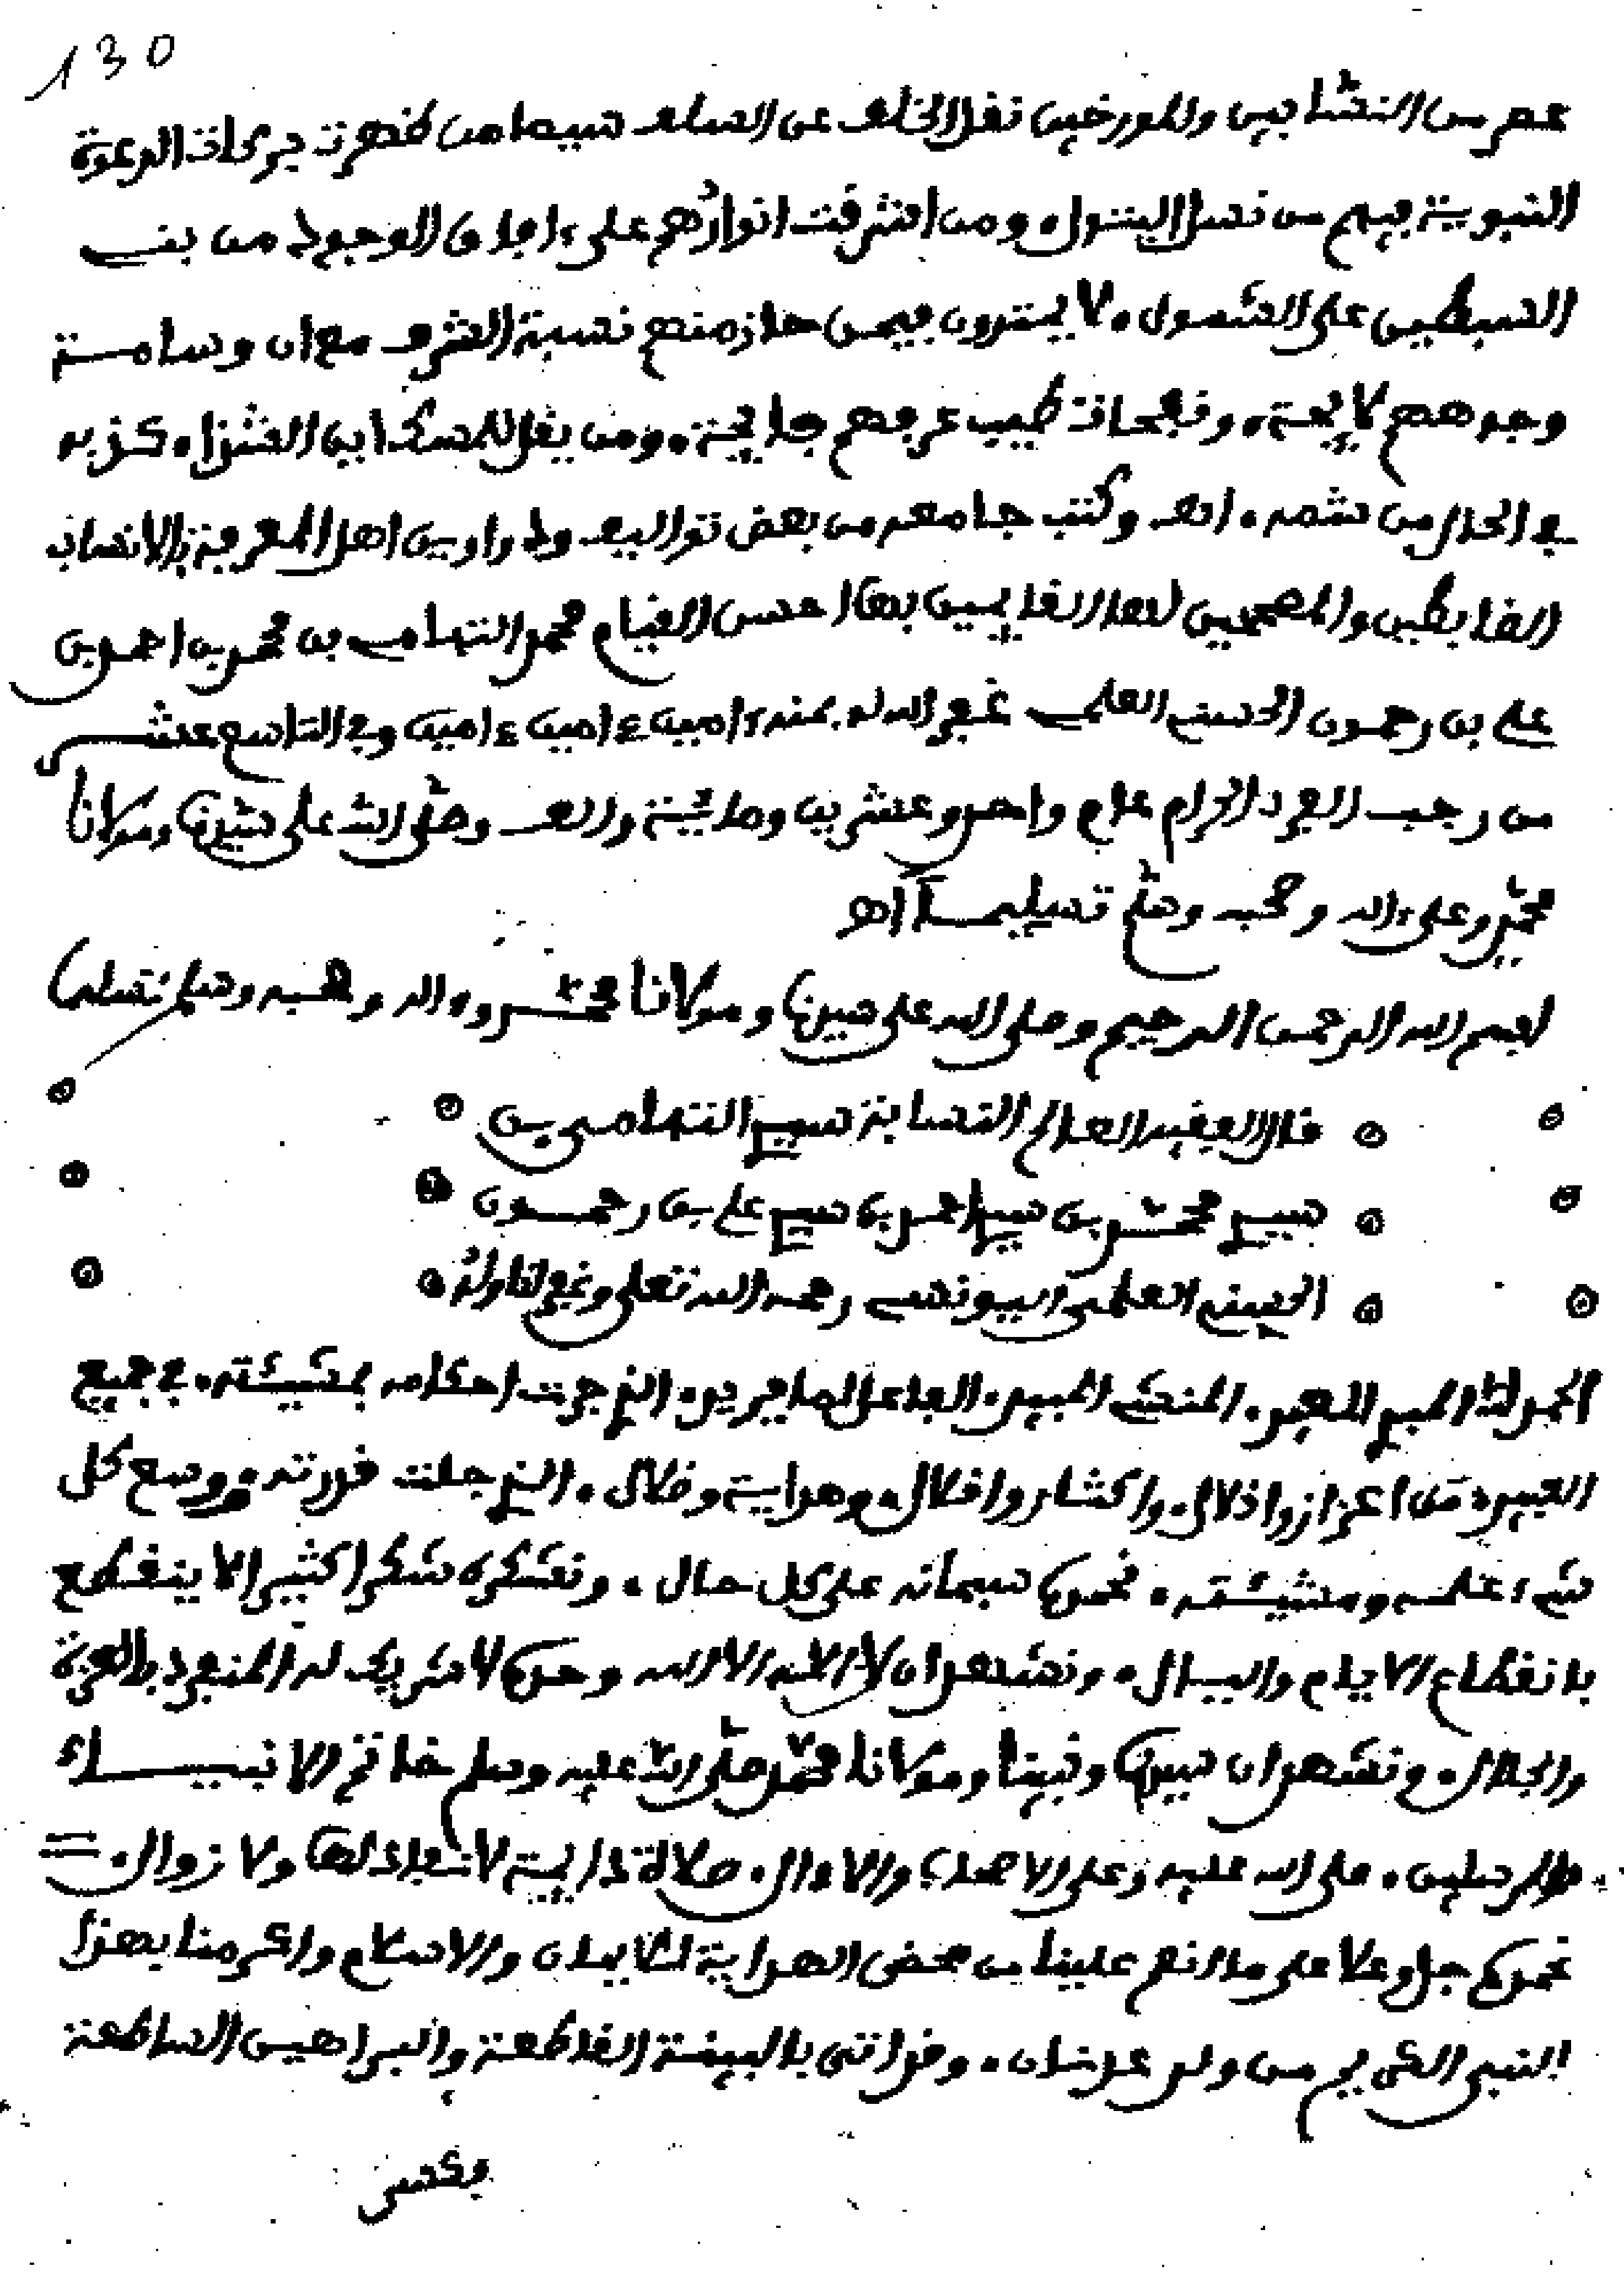 130
عصر من النسّابين والمورخين نقل الخلف عن السلف سيما من ظهرت بركات الدعوة
النبوية فيهم من نسل البتول، ومن اشرقت انوارُهم على ءافاق الوجود من بني
السبطين على الشمول. لا يمترون فيمن حاز منهم نسبة الشرف مع ان وسامة
وجوههم لايحة، ونفحات طيب عرفهم فايحة. ومن يقل للمسك اين الشذا. كذبه
في الحال من شمه. انتهى وكتب جامعه من بعض تواليف ودواوين اهل المعرفة بالانساب
الضابطين والمصححين لها القايمين بها احسن القيام محمد التهامي بن محمد بن احمد بن
علي بن رحمون الحسني العلمي غفر الله له بمنه ءامين ءامين ءامين وفي التاسع عشر
من رجب الفرد الحرام عام واحد وعشرين ومايىة والف وصلّى اللهُ على سيّدنا ومولانا
محمّد وعلى ءاله وصحبه وسلّم تسليمــاً اهـ
لبسم الله الرحمن الرحيم وصلى الله على سيدنا ومولانا محمّد وءاله وصحبه وسلم تسليما
قال الفقيه العالم النسابة سيدي التهامي بن
سيدي محمّد بن سيدي احمد بن سيدي علي بن رحمــون
الحسني العلمي اليونسي رحمه الله تعلى ونفع لنا ولهُ
الحمد لله المبدي المعيد. المنشى المبيد. الفاعل لما يريد. الذي جرت احكامه بمشيئته. في جميع
العبيد، من اعزاز واذلال. واكثار واقلال. وهداية وضلال. الذي جلت قدرته. ووسع كل
شيء علمه ومشيئته. نحمده سبحانه على كل حال. ونشكره شكرا كثيرا لا ينقطع
بانقطاع الايام والليال. ونشهد ان لا الاه الا الله وحده لا شريك له المنفرد بالعزة
والجلال. ونشهد ان سيدنا ونبينا ومولانا محمّد صلّى اللهُ عليه وسلم خاتم الانبيــاء
والمرسلين. صلى الله عليه وعلى الاصحاب والال. صلاة دايمة لا نفاد لها ولا زوال.
نحمده جل وعلا على ما انعم علينا من محض الهداية للايمان والاسلام واكرمنا بهذا
النبي الكريم من ولد عدنان. وقد اتى بالبينة القاطعة والبراهين الساطعة